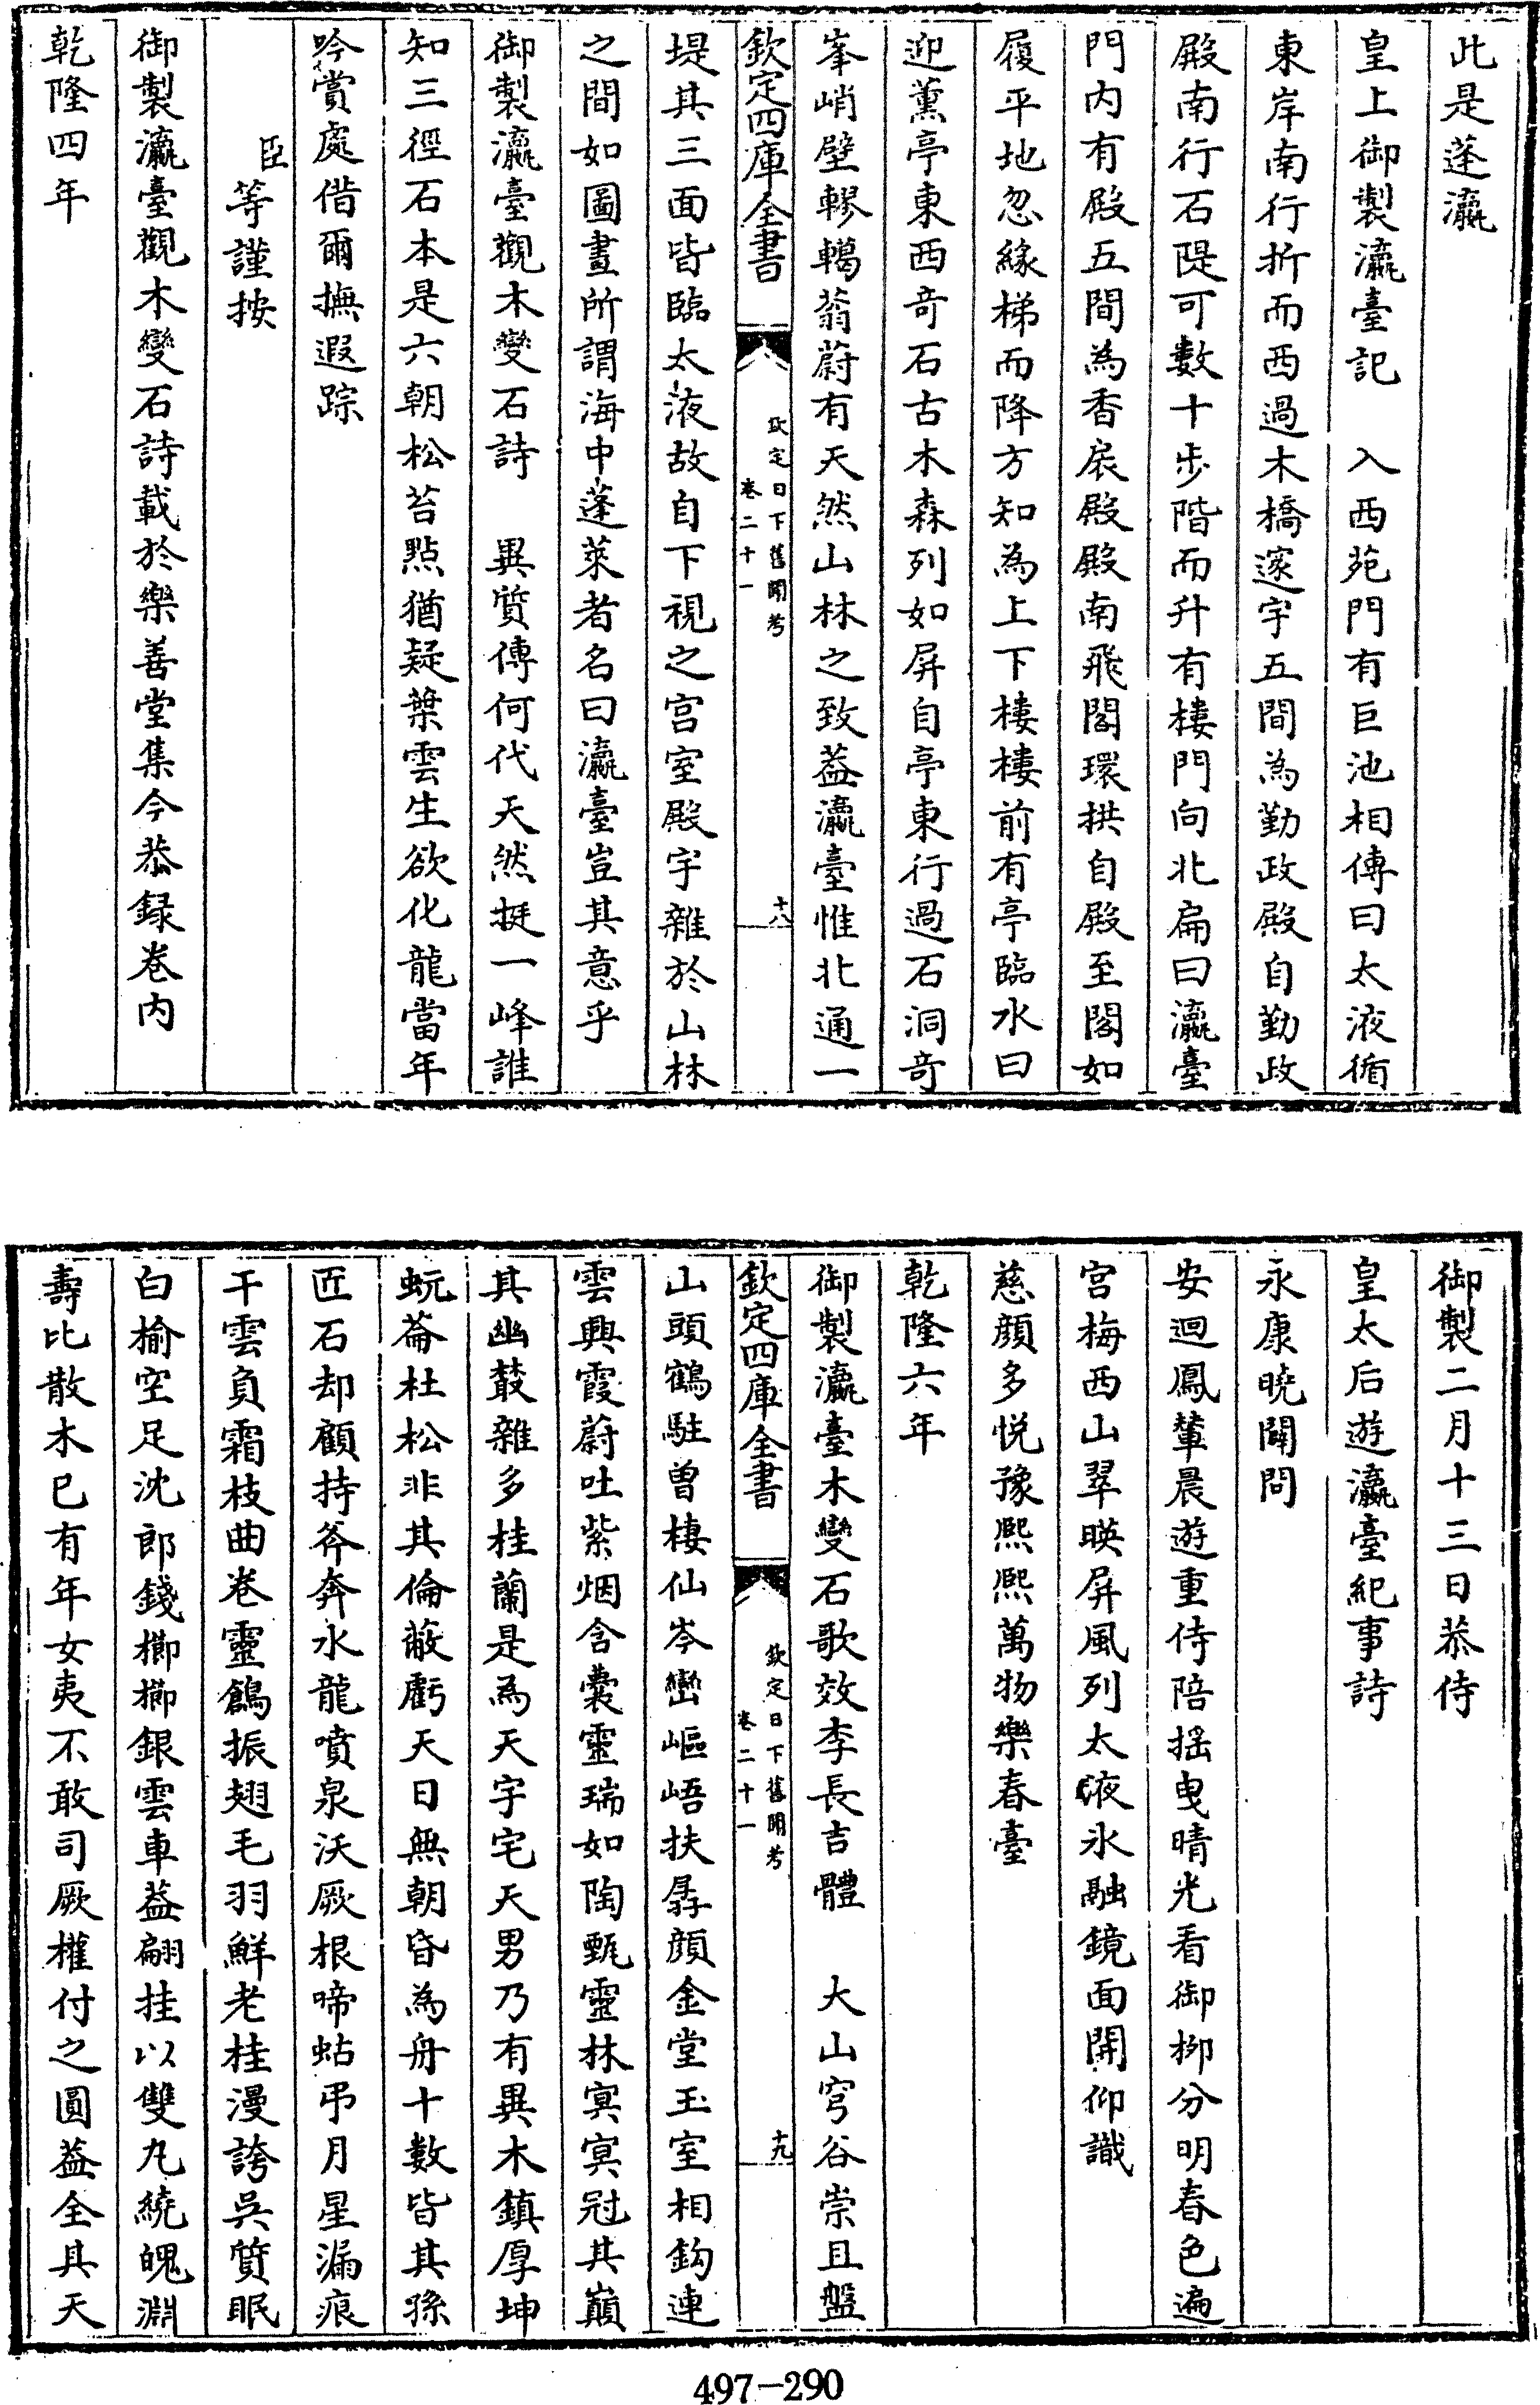 此是蓬瀛
皇上御製瀛臺記　入西苑門有巨池相傳曰太液循
東岸南行折而西過木橋邃宇五間為勤政殿自勤政
殿南行石隄可數十步階而升有樓門向北扁曰瀛臺
門内有殿五間為香扆殿殿南飛閣環拱自殿至閣如
履平地忽緣梯而降方知為上下樓樓前有亭臨水曰
迎薰亭東西奇石古木森列如屏自亭東行過石洞奇
峯峭壁轇轕蓊蔚有天然山林之致葢瀛臺惟北通一
欽定四庫全書
欽定日下舊聞考
卷二十一
十八
堤其三面皆臨太液故自下視之宫室殿宇雜於山林
之間如圖畫所謂海中蓬萊者名曰瀛臺豈其意乎
御製瀛臺觀木變石詩　異質傳何代天然挺一峰誰
知三徑石本是六朝松苔點猶疑葉雲生欲化龍當年
吟賞處借爾撫遐踪
臣等謹按
御製瀛臺觀木變石詩載於樂善堂集今恭録卷内
乾隆四年
御製二月十三日恭侍
皇太后遊瀛臺紀事詩
永康曉闢問
安迴鳳輦晨遊重侍陪摇曳晴光看御柳分明春色遍
宫梅西山翠暎屏風列太液氷融鏡面開仰識
慈顔多悦豫熙熙萬物樂春臺
乾隆六年
御製瀛臺木變石歌效李長吉體　大山穹谷崇且盤
欽定四庫全書
欽定日下舊聞考
卷二十一
十九
山頭鶴駐曾棲仙岑巒嶇峿扶孱顔金堂玉室相鈎連
雲興霞蔚吐紫烟含囊靈瑞如陶甄靈林冥冥冠其巔
其幽叢雜多桂蘭是為天宇宅天男乃有異木鎮厚坤
蚖菕杜松非其倫蔽虧天日無朝昏為舟十數皆其孫
匠石却顧持斧奔水龍噴泉沃厥根啼蛄弔月星漏痕
干雲負霜枝曲卷靈鶬振翅毛羽鮮老桂漫誇吳質眠
白榆空足沈郎錢櫛櫛銀雲車葢翩挂以雙丸繞魄淵
壽比散木已有年女夷不敢司厥權付之圓葢全其天
497-290